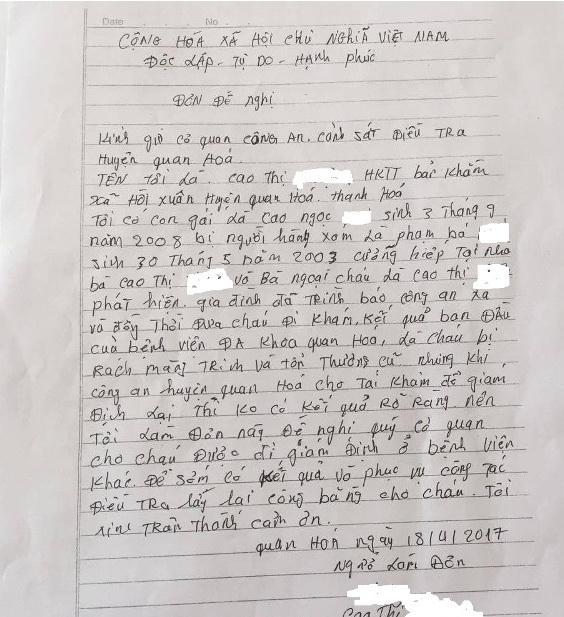 Date No
CỘNG HÓA XÃ HỘI CHỦ NGHĨA VIỆT NAM
Độc LẬP - TỰ DO - HẠNH phúc
ĐƠN ĐỀ Nghị
Kính gửi cơ quan công An, cảnh sát ĐiỀU TRA
Huyện quan Hoá
TÊN Tôi Là. cao Thị HKTT bản Khằm
xã Hồi xuân Huyện quan Hoá. Thanh Hoá
Tôi có con gái Là cao ngọc sinh 3 Tháng 9
năm 2008 bị người hàng xóm Là phạm bá
sinh 30 Tháng 5 năm 2003 cưỡng hiếp Tại nhà
bà cao Thị và Bà ngoại cháu Là cao thị
phát hiện. gia đình đã TRình báo công an xã
và đồng Thời Đưa cháu Đi Khám, Kết quả ban Đầu
của bệnh viên ĐA Khoa quan Hoa, Là cháu bị
Rạch màng TRinh và tổn Thương cũ nhưng Khi
công an huyện quan Hoá cho Tái Khám để giám
Định Lại Thì Ko có Kết quả Rõ Rang nên
Tôi Làm Đơn này Đề nghị quý cơ quan
cho cháu Được đi giám Định ở bệnh viện
Khác. Để sớm có Kết quả và phục vụ công Tác
ĐiỀU TRA Lấy Lại công bằng cho cháu. Tôi
xin TRân Thành cảm ơn.
quan HoÁ ngày 18/4/2017
Người Làm Đơn
Cao Thị